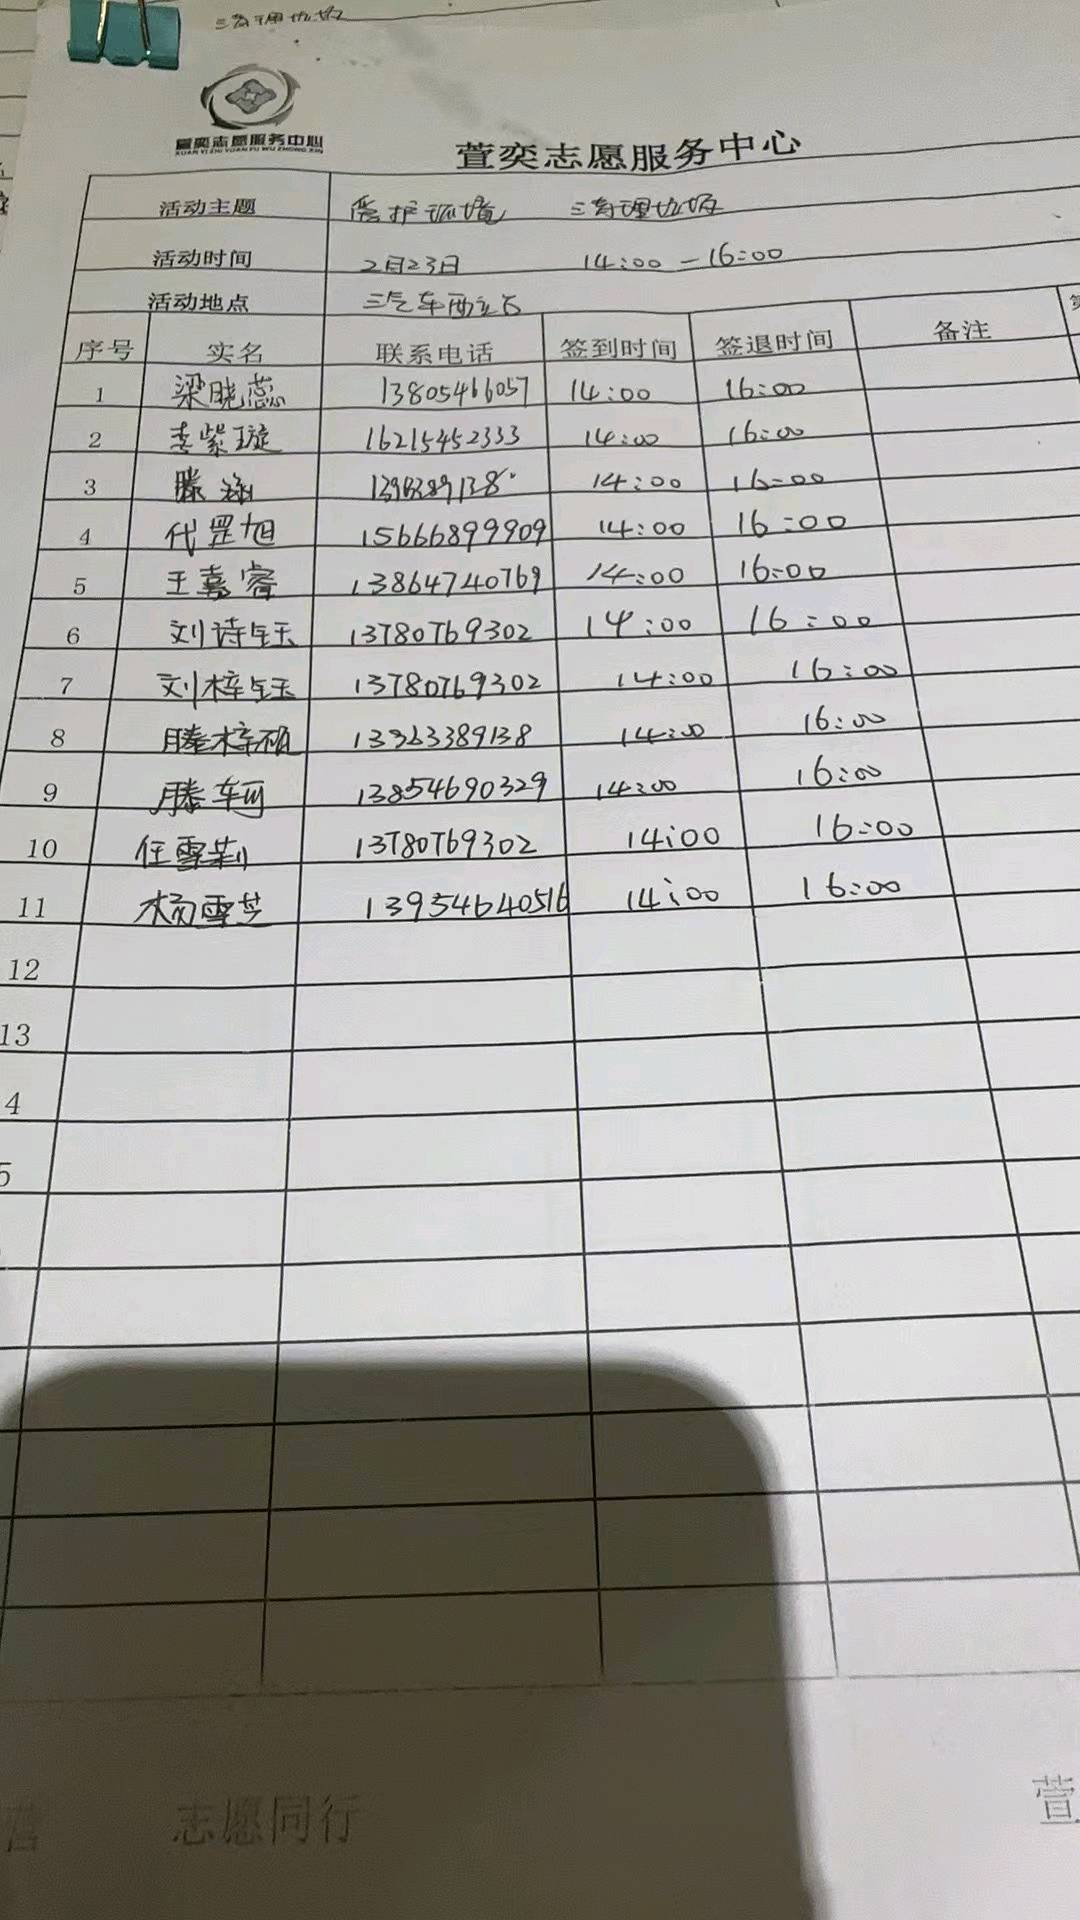 萱奕志愿服务中心
XUAN YI ZHI YUAN FU WU ZHONG XIN
萱奕志愿服务中心
活动主题 护环境
活动时间 2月23日 14:00—16:00
活动地点 三汽车西
序号 实名 联系电话 签到时间 签退时间 备注
1 梁晓蕊 13805466057 14:00 16:00
2 李紫璇 16215452333 14:00 16:00
3 滕 14:00 16:00
4 代罡旭 15666899909 14:00 16:00
5 王嘉睿 13864740769 14:00 16:00
6 刘诗钰 13780769302 14:00 16:00
7 刘梓钰 13780769302 14:00 16:00
8 滕梓硕 13963389138 14:00 16:00
9 滕轲 13854690329 14:00 16:00
10 任雪莉 13780769302 14:00 16:00
11 杨雪芝 13954640516 14:00 16:00
12
13
4
5
志愿同行
萱